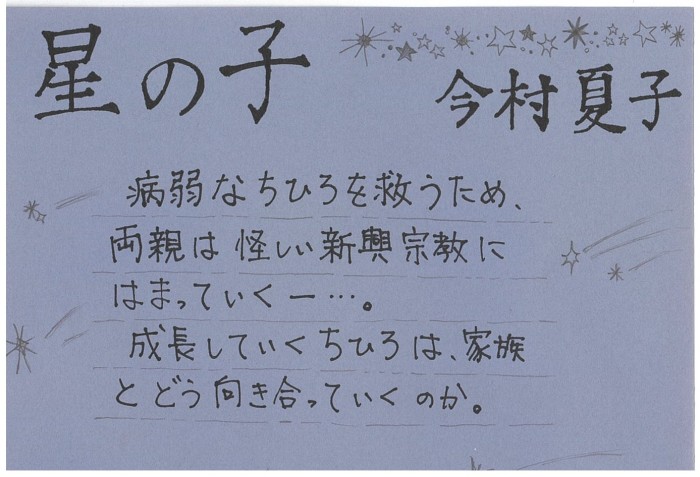 星の子
今村夏子
病弱なちひろを救うため、
両親は怪しい新興宗教に
はまっていくー…。
成長していくちひろは、家族
とどう向き合っていくのか。